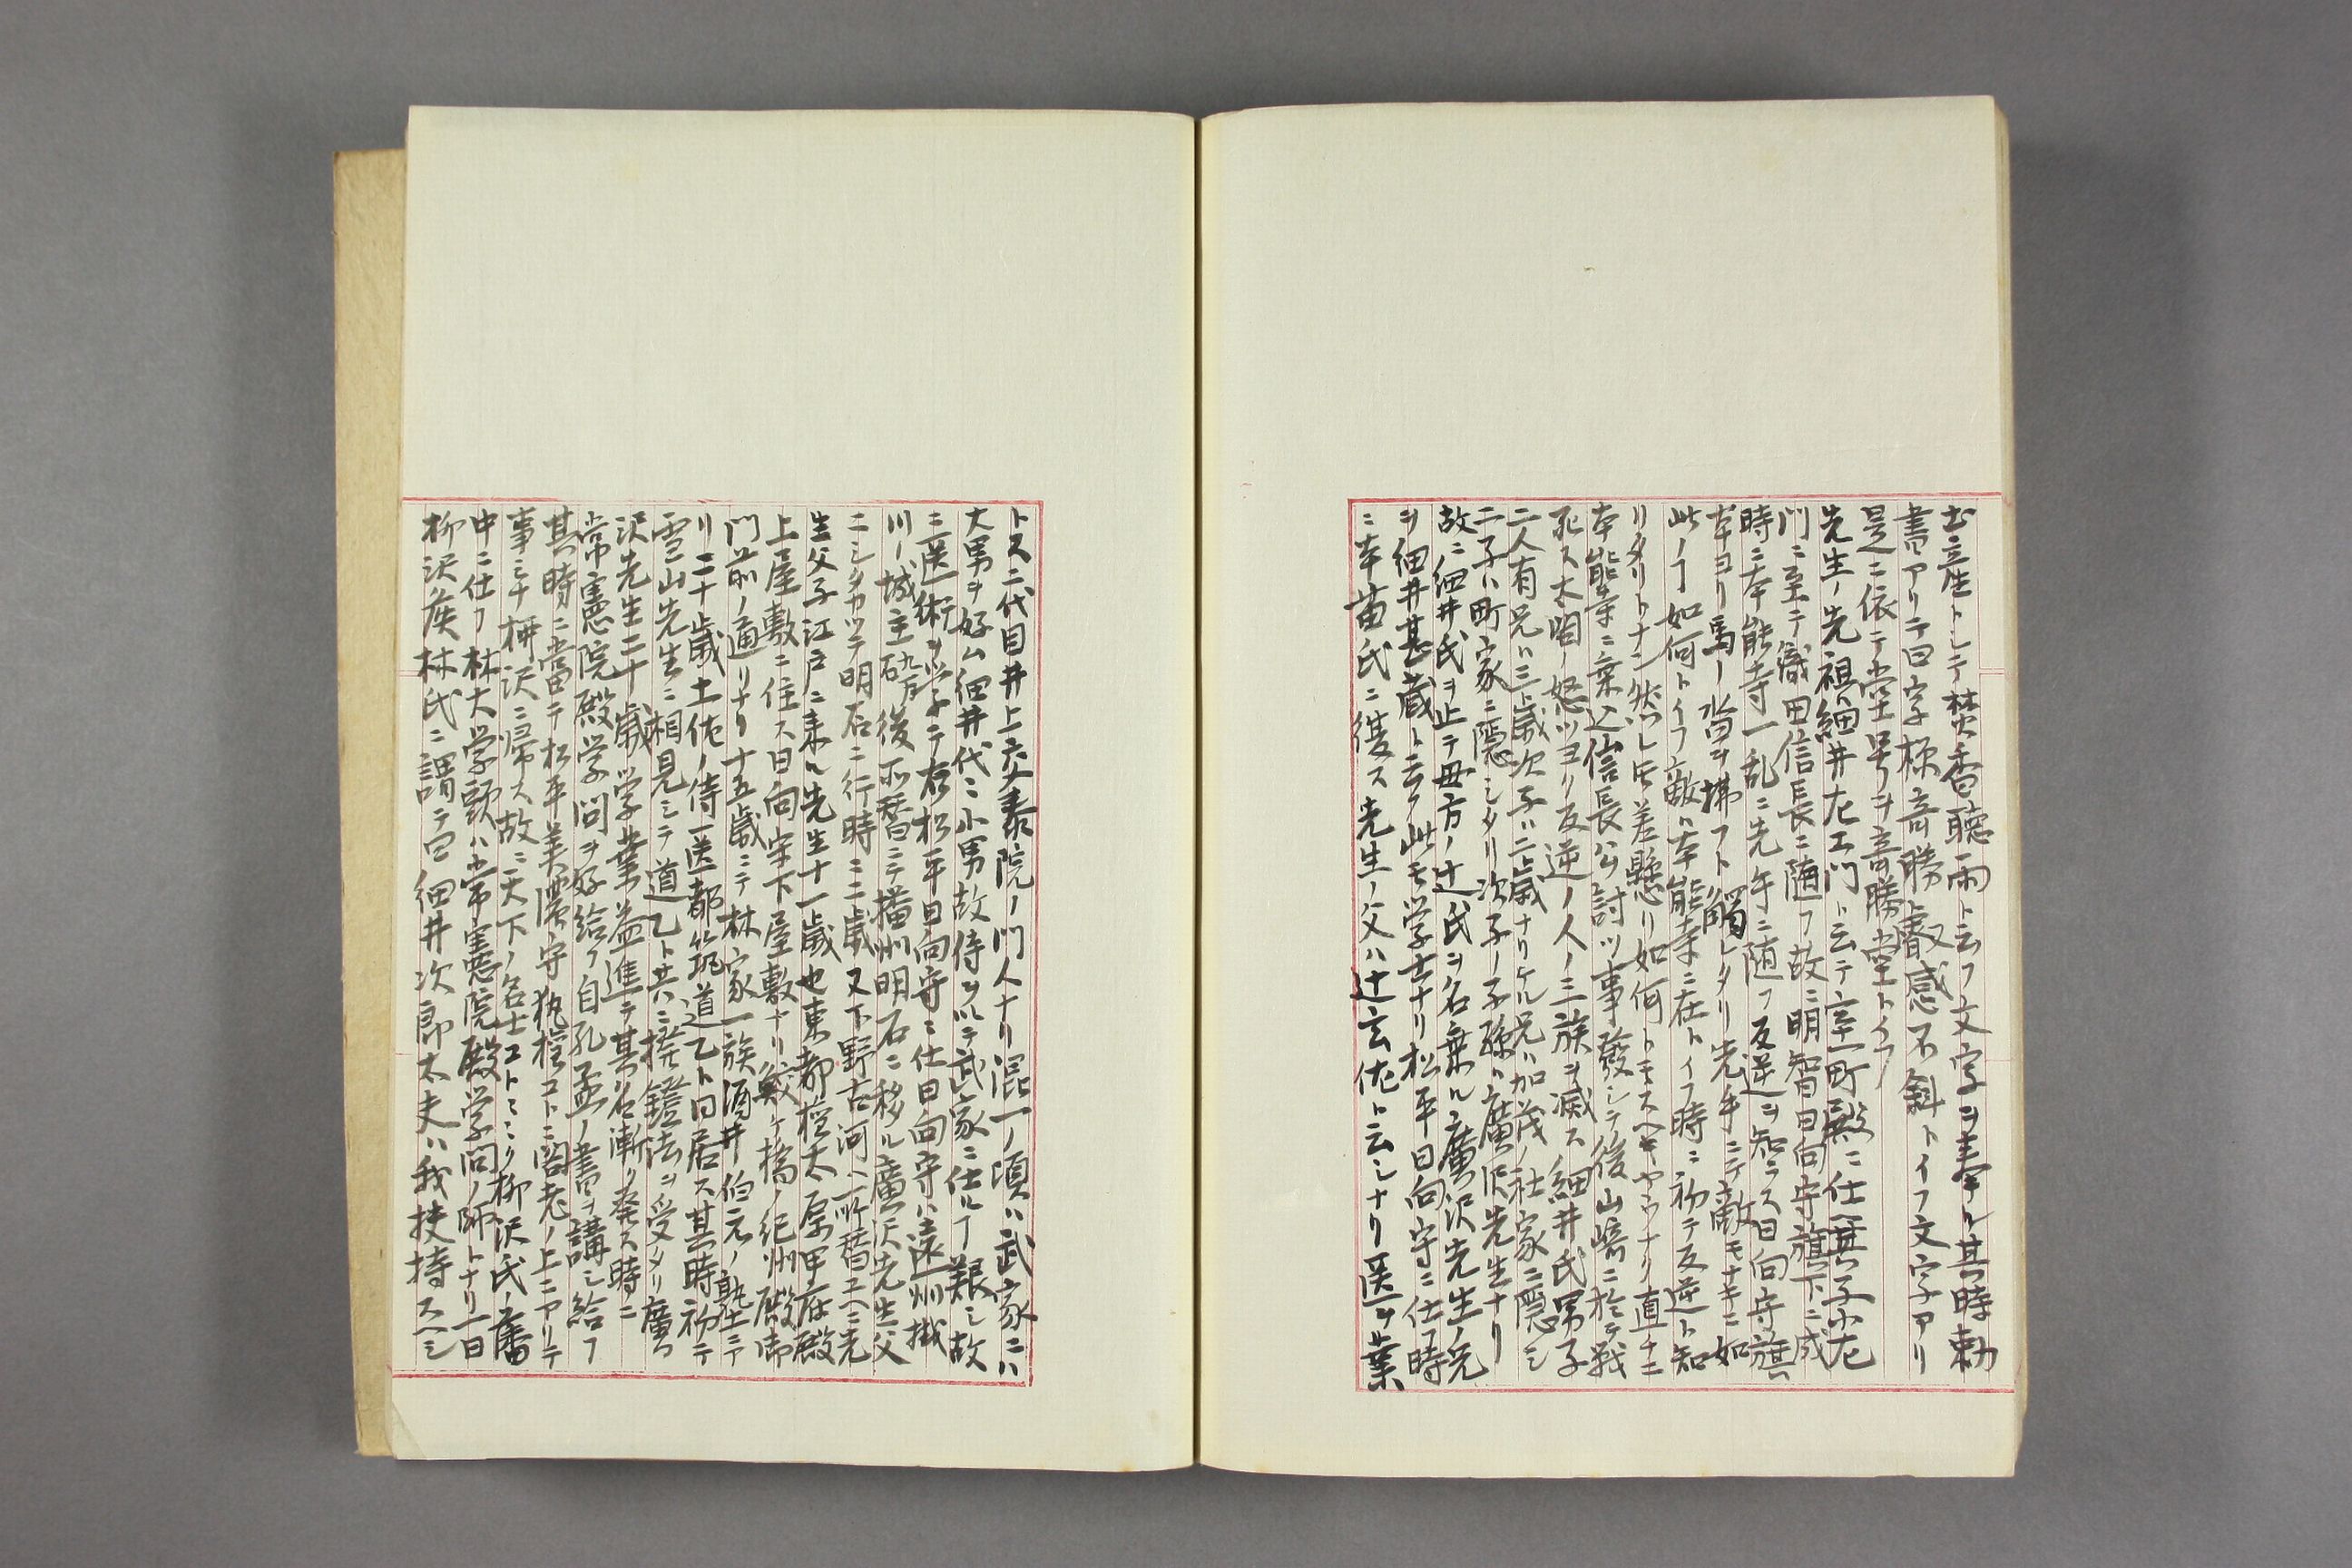 書立産トシテ焚香聴雨ト云フ文字ヲ奉ル其時勅
書アリテ曰字極奇勝叡感不斜トイフ文字アリ
是ニ依テ堂号ヲ奇勝堂トイフ
先生ノ先祖ハ細井左エ門ト云テ室町殿ニ仕其子小左
門ニ至テ織田信長ニ随フ故ニ明智日向守旗下ニ成
時ニ本能寺一乱ニ先手ニ随フ反逆ヲ知ラス日向守旗
本ヨリ馬ノ沓ヲ拂フト觸レタリ先手ニテ敵モナキニ如
此ノヿ如何トイフ敵ハ本能寺ニ在トイフ時ニ初テ反逆ト知
リタリトナン然レ𪜈差懸リ如何トモスヘキヤウナク直チニ
本能寺ニ乗込信長公ヲ討ツ事發シテ後山崎ニ於テ戦
死ス太閤ノ怒ツヨリ反逆ノ人ノ三族ヲ滅ス細井氏男子
二人有兄ハ三歳次子ハ二歳ナリケル兄ハ加茂ノ社家ニ隠シ
二子ハ町家ニ隠シタリ次子ノ子孫ハ廣沢先生ナリ
故ニ細井氏ヲ止テ母方ノ辻氏ヲ名乗ル廣沢先生ノ兄
ヲ細井甚蔵ト云フ此モ学士ナリ松平日向守ニ仕フ時
ニ本苗氏ニ復ス先生ノ父ハ辻玄佐ト云シナリ医ヲ業
トス二代目井上玄泰院ノ門人ナリ混一ノ頃ハ武家ニハ
大男ヲ好ム細井代ニ小男故侍ヲ以テ武家ニ仕ルヿ艱シ故
ニ医術ヲ学テ右松平日向守ニ仕日向守ハ遠州掛
川ノ城主 後所替ニテ播州明石ニ移ル廣沢先生父
ニシタカツテ明石ニ行時ニ二歳又下野古河ヘ所替ユヘニ先
生父子江戸ニ来ル先生十一歳也東都桜太原甲府殿
上屋敷ニ住ス日向守下屋敷ナリ鮫ケ橋ノ紀州殿御
門前ノ通リナリ十五歳ニテ林家一族酒井伯元ノ塾ニテ
リ二十歳土佐ノ侍医都筑道乙ト同居ス其時初テ
雪山先生ニ相見シテ道乙ト共ニ撥鐙法ヲ受タリ廣
沢先生三十歳学業益進テ其名漸ク発ス時ニ
常憲院殿学問ヲ好給フ自孔孟ノ書ヲ講シ給フ
其時ニ當テ松平美濃守執権コトニ閣老ノ上ニアリテ
事ミナ柳沢ニ帰ス故ニ天下ノ名士コトニク柳沢氏ノ藩
中ニ仕フ林大学頭ハ常憲院殿学問ノ師トナリ一日
柳沢侯林氏ニ謂テ曰細井次郎太夫ハ我扶持スヘシ